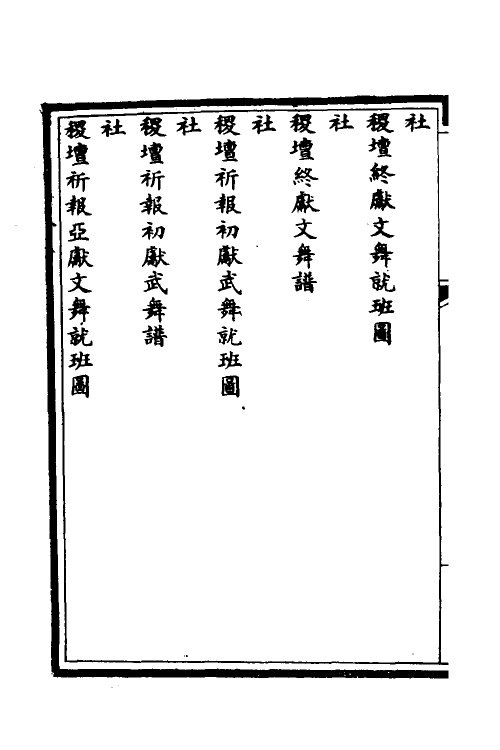 社
稷壇終獻文舞就班圖
社
稷壇終獻文舞譜
社
稷壇祈報初獻武舞就班圖
社
稷壇祈報初獻武舞譜
社
稷壇祈報亞獻文舞就班圖